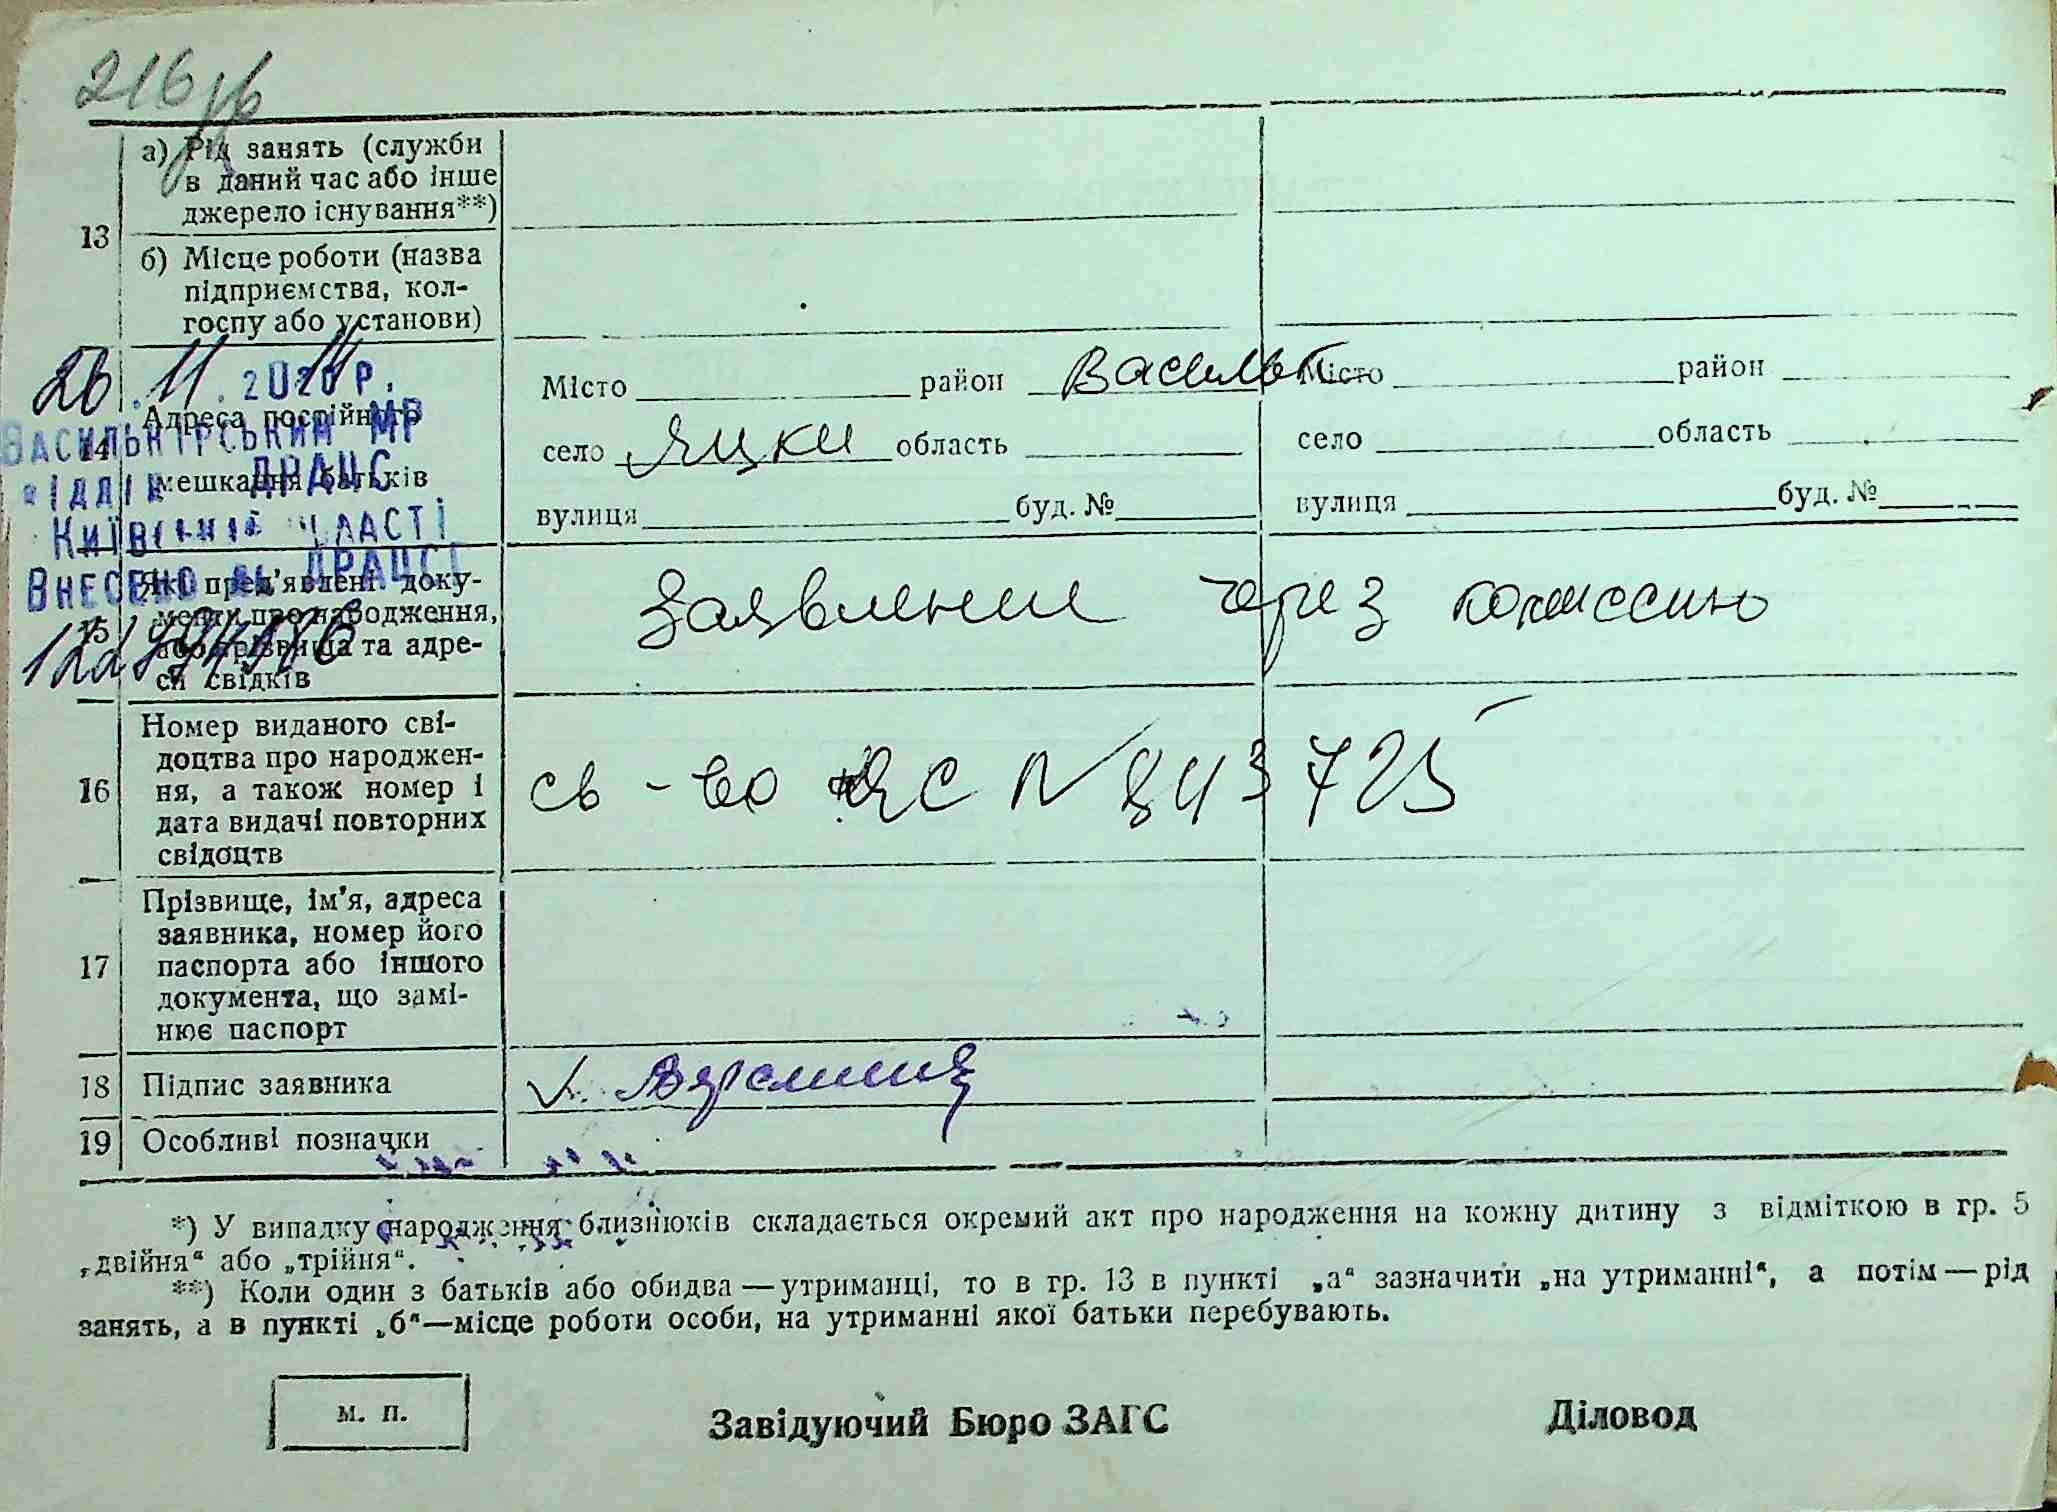 216
13
а) Рід занять (служби
в даний час або інше
джерело існування**)
б) Місце роботи (назва
підприємства, кол-
госпу або установи)
26.11.2020 р.
Васильківський МР
відділ ДРАЦС
Київській області
Внесено до ДРАЦСГ
14
Адреса постійного
мешкання батьків
Місто район Васильк
село Яцки область
вулиця буд. №
Місто район
село область
вулиця буд. №
15
Які пред'явлені доку-
менти про народження,
або прізвища та адре-
си свідків
Заявление через комиссию
16
Номер виданого сві-
доцтва про народжен-
ня, а також номер і
дата видачі повторних
свідоцтв
св-во ЯС N 843725
17
Прізвище, ім'я, адреса
заявника, номер його
паспорта або іншого
документа, що замі-
нює паспорт
18 Підпис заявника
19 Особливі позначки
*) У випадку народження близнюків складається окремий акт про народження на кожну дитину з відміткою в гр. 5
„двійня“ або „трійня“.
**) Коли один з батьків або обидва — утриманці, то в гр. 13 в пункті „а“ зазначити „на утриманні“, а потім — рід
занять, а в пункті „б“—місце роботи особи, на утриманні якої батьки перебувають.
м. п.
Завідуючий Бюро ЗАГС
Діловод